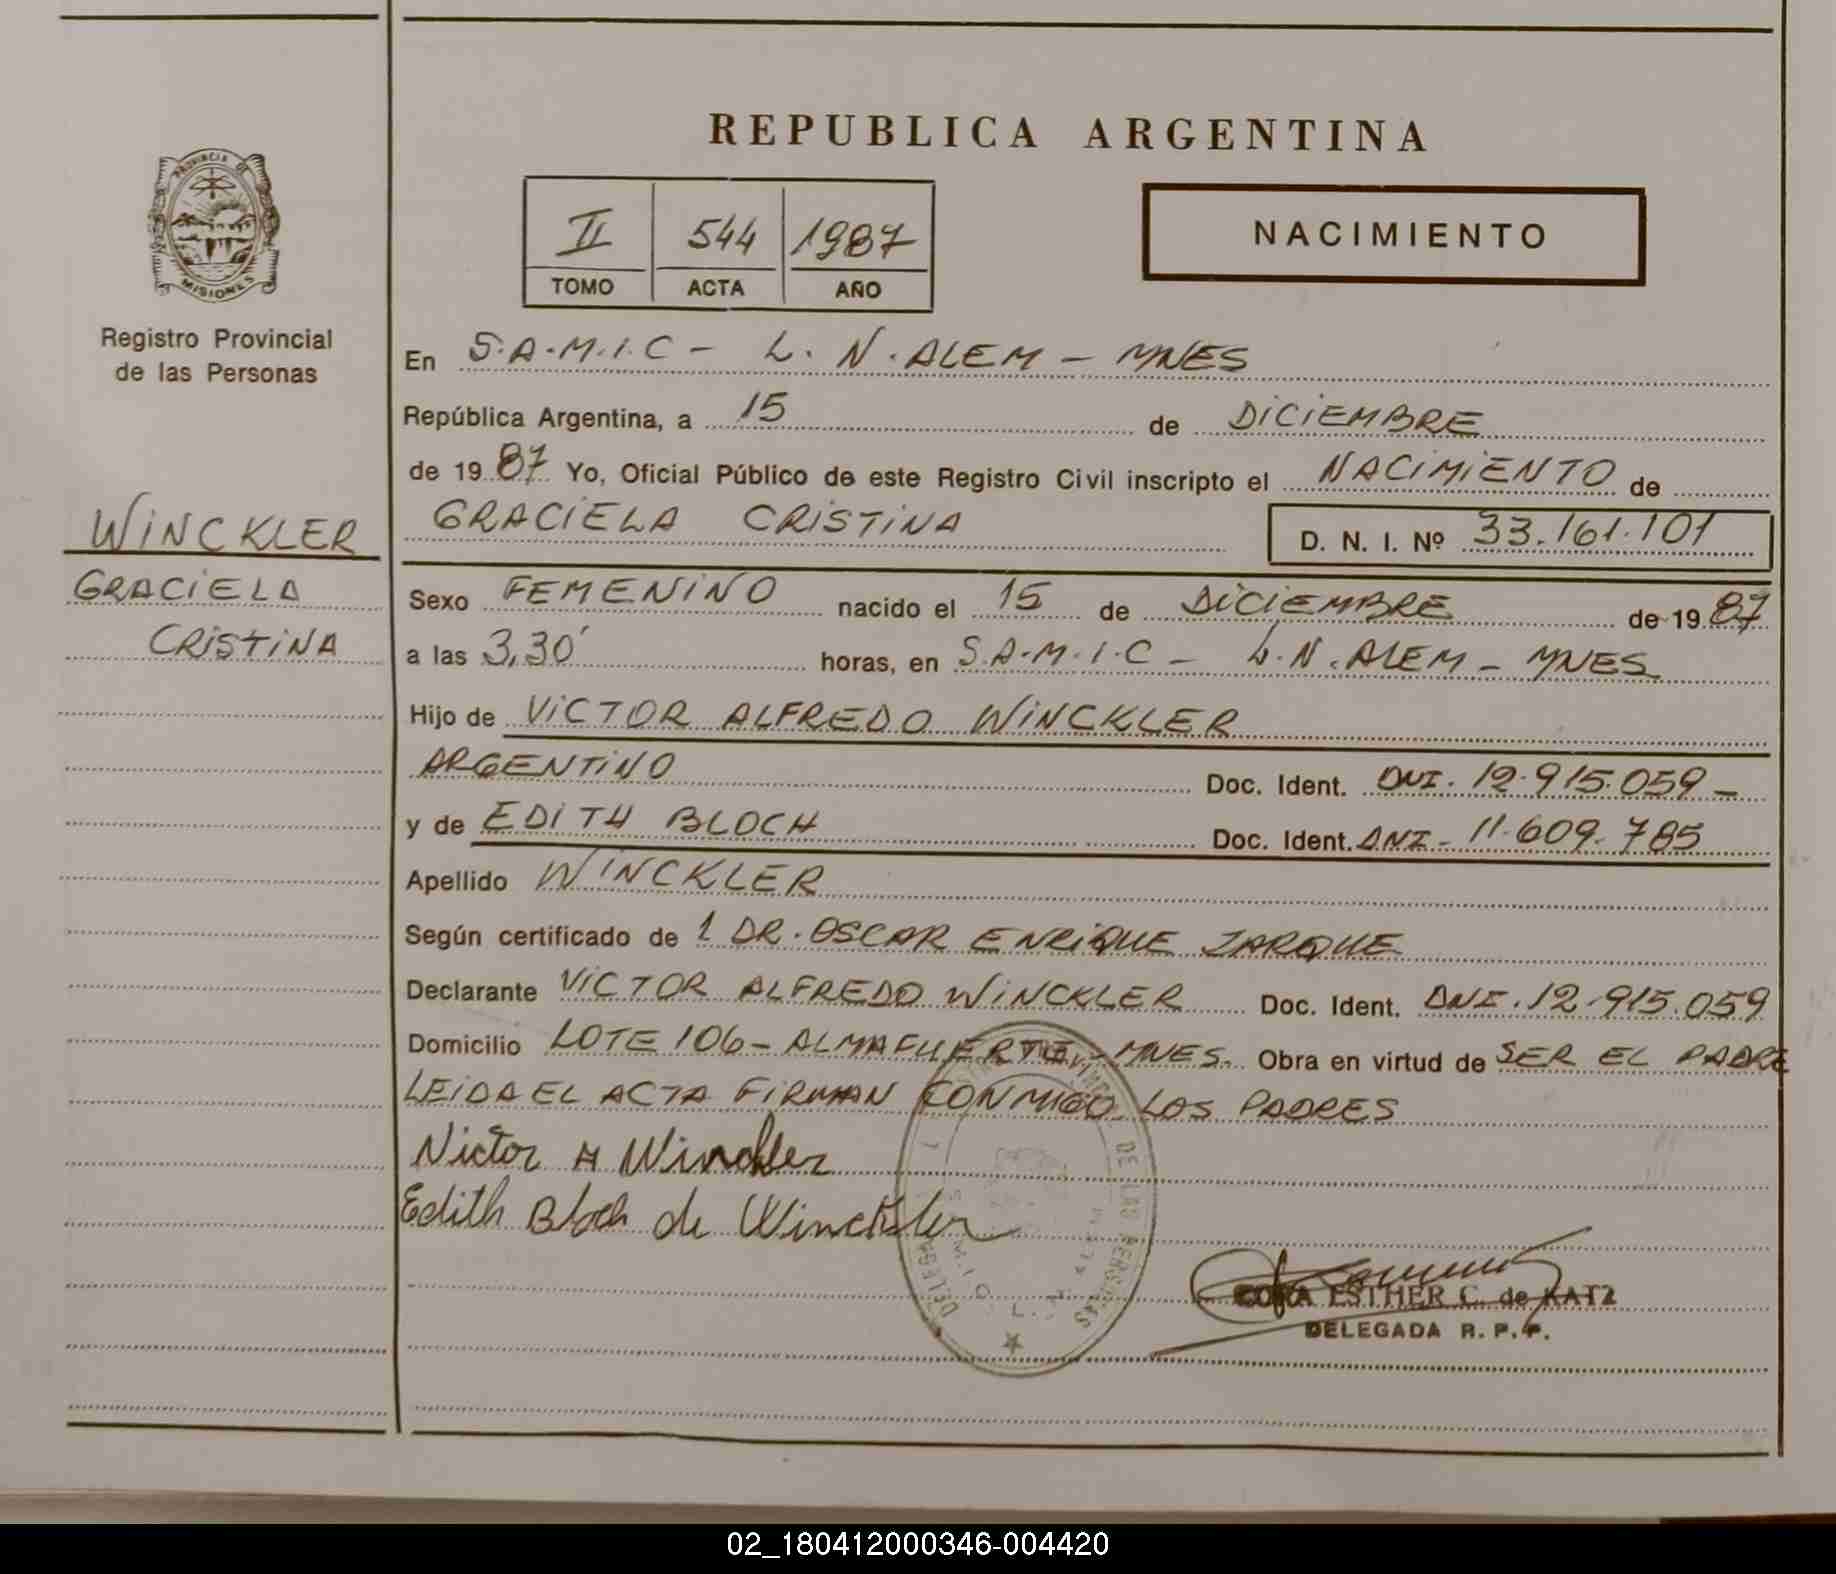 REPUBLICA ARGENTINA
PROVINCIA DE
MISIONES
Registro Provincial
de las Personas
II 544 1987
TOMO ACTA AÑO
NACIMIENTO
En S.A.M.I.C - L. N. ALEM - MNES
República Argentina, a 15 de DICIEMBRE
de 19 87 Yo, Oficial Público de este Registro Civil inscripto el NACIMIENTO de
GRACIELA CRISTINA D. N. I. Nº 33.161.101
WINCKLER
GRACIELA
CRISTINA
Sexo FEMENINO nacido el 15 de DICIEMBRE de 19 87
a las 3,30' horas, en S.A.M.I.C - L.N. ALEM - MNES
Hijo de VICTOR ALFREDO WINCKLER
ARGENTINO Doc. Ident. DNI. 12.915.059 -
y de EDITH BLOCH Doc. Ident. DNI - 11.609.785
Apellido WINCKLER
Según certificado de 1 DR. OSCAR ENRIQUE JARQUE
Declarante VICTOR ALFREDO WINCKLER Doc. Ident. DNI. 12.915.059
Domicilio LOTE 106 - ALMAFUERTE - MNES. Obra en virtud de SER EL PADRE
LEIDA EL ACTA FIRMAN CONMIGO LOS PADRES
Victor A Winckler
Edith Bloch de Winckler
DE LAS PERSONAS
CORA ESTHER C. de KATZ
DELEGADA R. P. P.
02_180412000346-004420